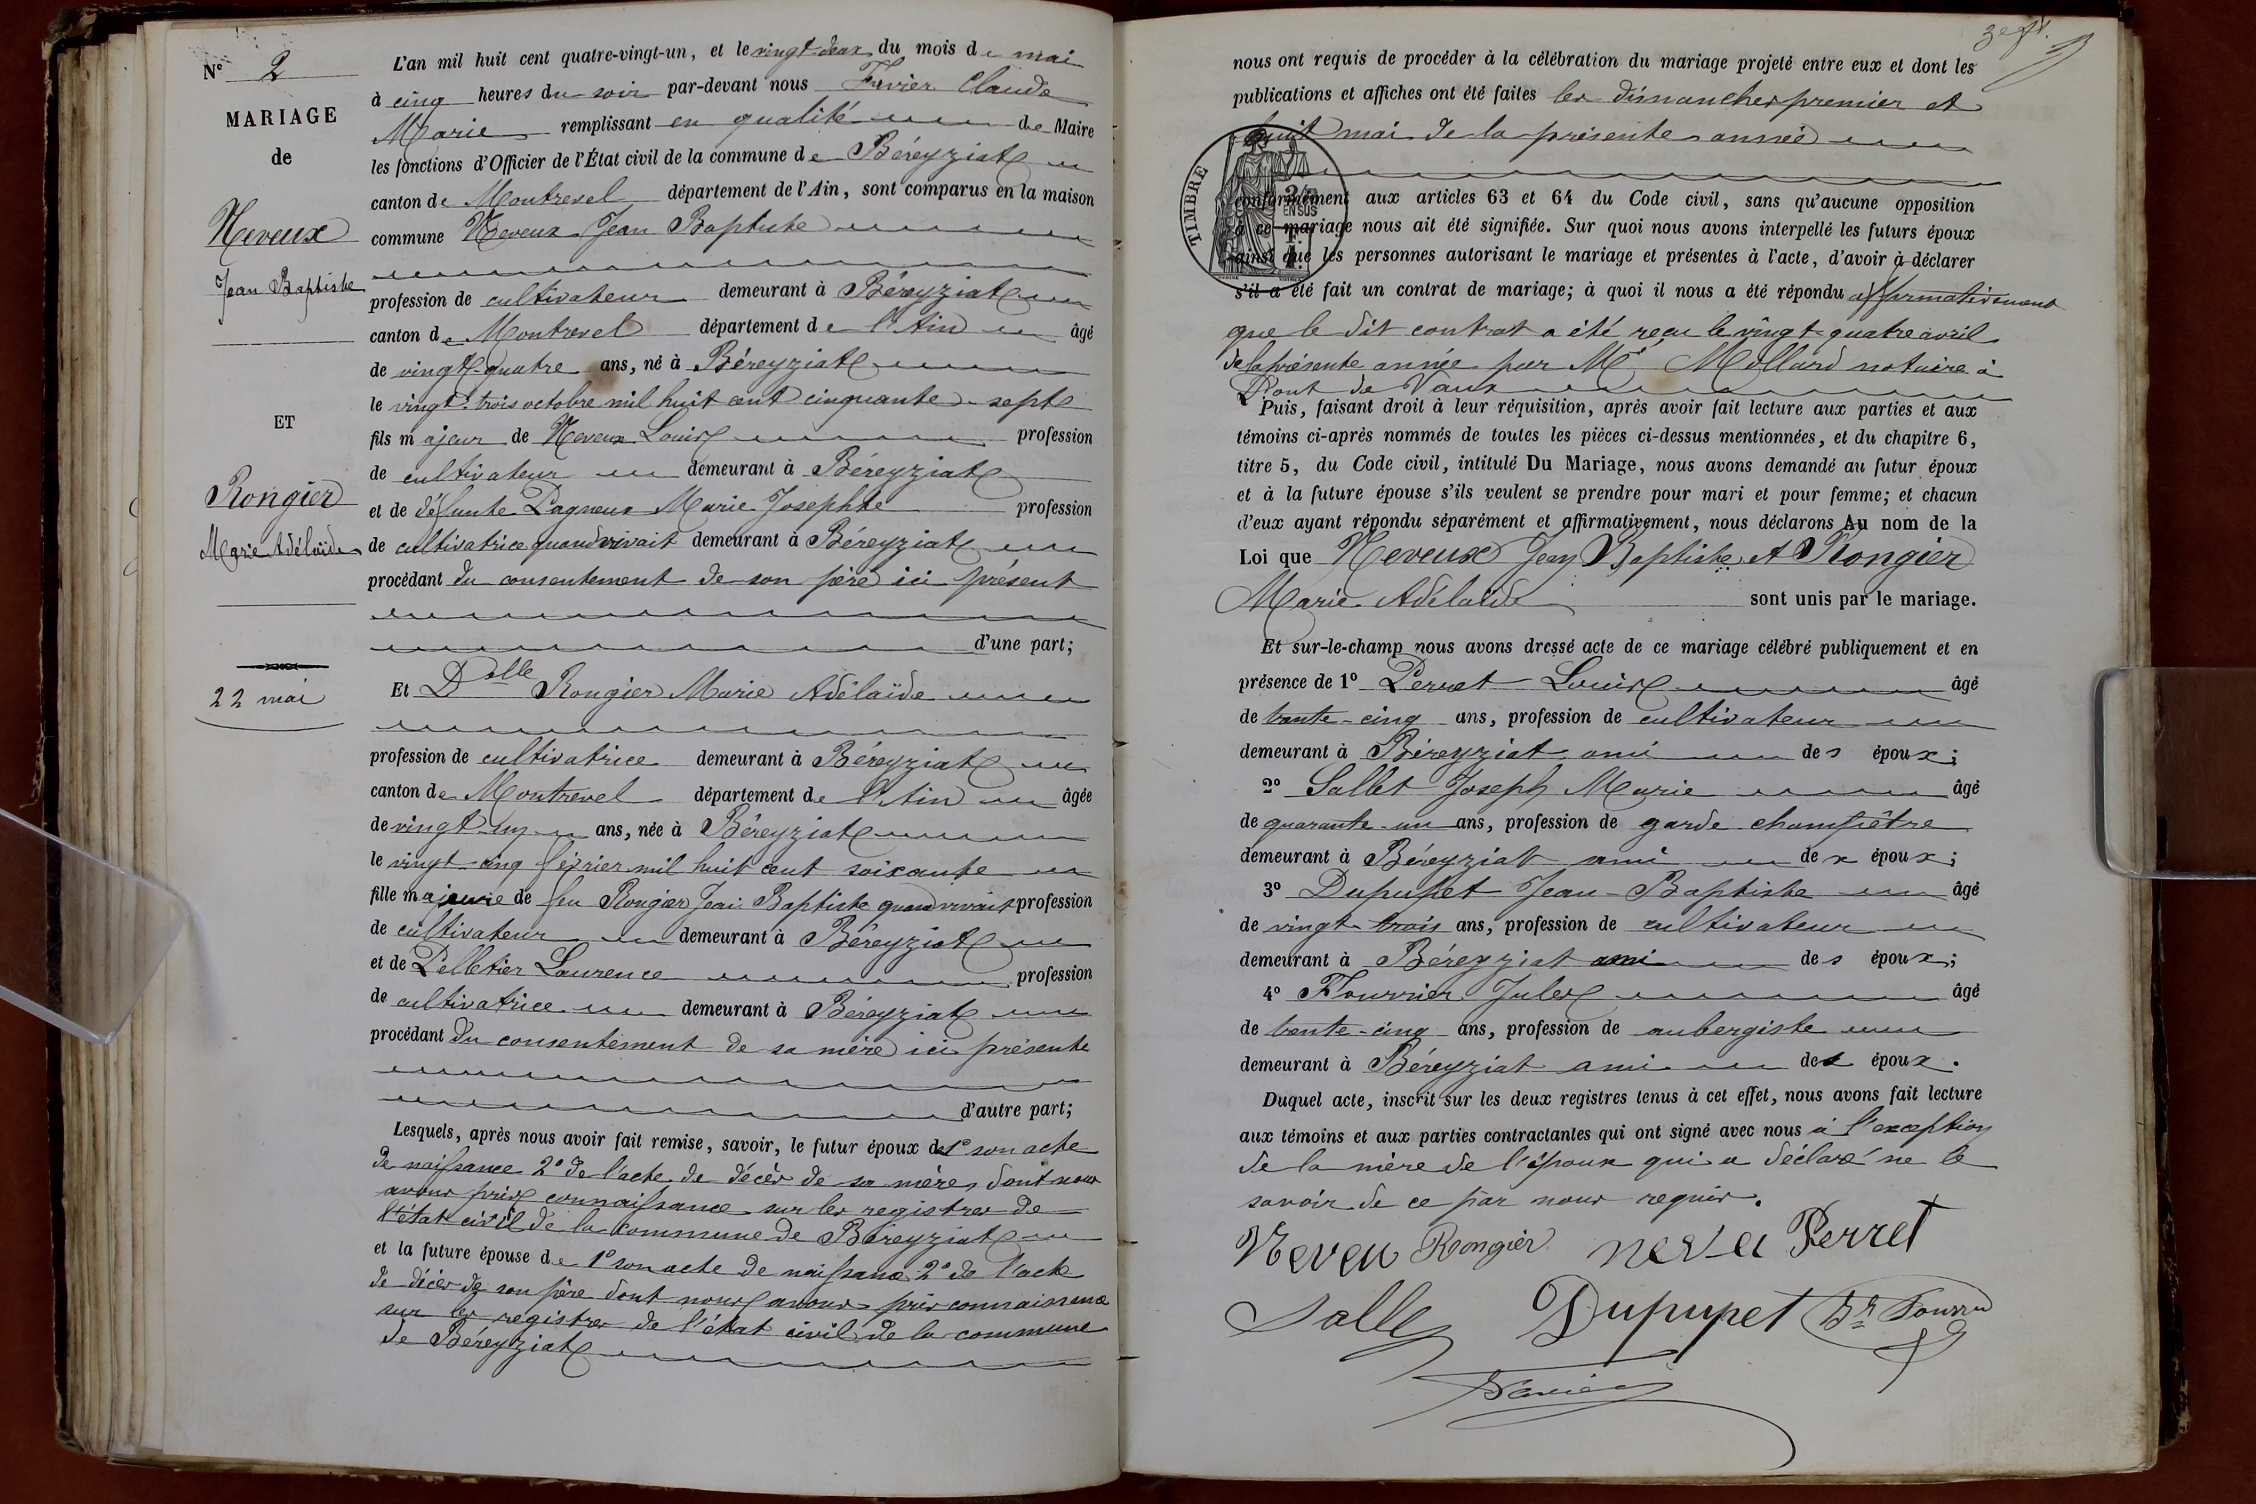 N° 2
MARIAGE
de
Neveux
Jean Baptiste
ET
Rongier
Marie Adélaïde
22 mai
L'an mil huit cent quatre-vingt-un, et le vingt deux du mois de mai
à cinq heures du soir par-devant nous Favier Claude
Marie remplissant en qualité de Maire
les fonctions d'Officier de l'État civil de la commune de Béreyziat
canton de Montrevel département de l'Ain, sont comparus en la maison
commune Neveux Jean Baptiste
profession de cultivateur demeurant à Béreyziat
canton de Montrevel département de l'Ain âgé
de vingt-quatre ans, né à Béreyziat
le vingt-trois octobre mil huit cent cinquante-sept
fils majeur de Neveux Louis profession
de cultivateur demeurant à Béreyziat
et de défunte Pagneux Marie Josephte profession
de cultivatrice quand vivait demeurant à Béreyziat
procédant du consentement de son père ici présent
d'une part;
Et Delle Rongier Marie Adélaïde
profession de cultivatrice demeurant à Béreyziat
canton de Montrevel département de l'Ain âgée
de vingt-un ans, née à Béreyziat
le vingt-cinq février mil huit cent soixante
fille majeure de feu Rongier Jean Baptiste quand vivait profession
de cultivateur demeurant à Béreyziat
et de Pelletier Laurence profession
de cultivatrice demeurant à Béreyziat
procédant du consentement de sa mère ici présente
d'autre part;
Lesquels, après nous avoir fait remise, savoir, le futur époux de 1° son acte
de naissance 2° de l'acte de décès de sa mère, dont nous
avons pris connaissance sur les registres de
l'état civil de la commune de Béreyziat
et la future épouse de 1° son acte de naissance 2° de l'acte
de décès de son père dont nous avons pris connaissance
sur les registres de l'état civil de la commune
de Béreyziat
nous ont requis de procéder à la célébration du mariage projeté entre eux et dont les
publications et affiches ont été faites les dimanches premier et
huit mai de la présente année
TIMBRE
2/10
EN SUS
conformément aux articles 63 et 64 du Code civil, sans qu'aucune opposition
à ce mariage nous ait été signifiée. Sur quoi nous avons interpellé les futurs époux
ainsi que les personnes autorisant le mariage et présentes à l'acte, d'avoir à déclarer
s'il a été fait un contrat de mariage; à quoi il nous a été répondu affirmativement
que le dit contrat a été reçu le vingt-quatre avril
de la présente année par Me Mollard notaire à
Pont de Vaux
Puis, faisant droit à leur réquisition, après avoir fait lecture aux parties et aux
témoins ci-après nommés de toutes les pièces ci-dessus mentionnées, et du chapitre 6,
titre 5, du Code civil, intitulé Du Mariage, nous avons demandé au futur époux
et à la future épouse s'ils veulent se prendre pour mari et pour femme; et chacun
d'eux ayant répondu séparément et affirmativement, nous déclarons Au nom de la
Loi que Neveux Jean Baptiste et Rongier
Marie Adélaïde sont unis par le mariage.
Et sur-le-champ nous avons dressé acte de ce mariage célébré publiquement et en
présence de 1° Perret Louis âgé
de trente-cinq ans, profession de cultivateur
demeurant à Béreyziat ami des époux;
2° Sallet Joseph Marie âgé
de quarante-un ans, profession de garde champêtre
demeurant à Béreyziat ami des époux;
3° Dupupet Jean-Baptiste âgé
de vingt-trois ans, profession de cultivateur
demeurant à Béreyziat ami des époux;
4° Fourrier Jules âgé
de trente-cinq ans, profession de aubergiste
demeurant à Béreyziat ami des époux.
Duquel acte, inscrit sur les deux registres tenus à cet effet, nous avons fait lecture
aux témoins et aux parties contractantes qui ont signé avec nous à l'exception
de la mère de l'époux qui a déclaré ne le
savoir de ce par nous requis.
Neveu Rongier neveu Perret
Salle Dupupet